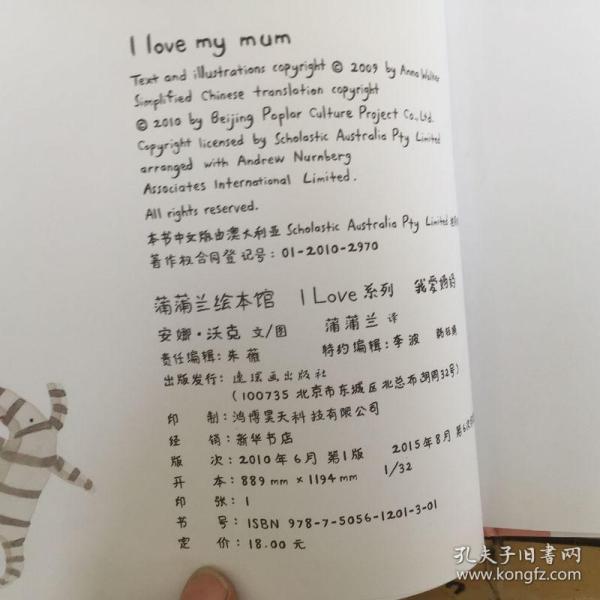 I love my mum
Text and illustrations copyright © 2009 by Anna Walker
Simplified Chinese translation copyright
© 2010 by Beijing Poplar Culture Project Co., Ltd.
Copyright licensed by Scholastic Australia Pty Limited
arranged with Andrew Nurnberg
Associates International Limited.
All rights reserved.
本书中文版由澳大利亚 Scholastic Australia Pty Limited
著作权合同登记号：01-2010-2970
蒲蒲兰绘本馆 I Love系列 我爱妈妈
安娜·沃克 文/图 蒲蒲兰 译
责任编辑：朱薇 特约编辑：李波
出版发行：连环画出版社
（100735 北京市东城区北总布胡同32号）
印 制：鸿博昊天科技有限公司
经 销：新华书店
版 次：2010年6月 第1版 2015年8月 第6次
开 本：889mm×1194mm 1/32
印 张：1
书 号：ISBN 978-7-5056-1201-3-01
定 价：18.00 元
孔夫子旧书网
www.kongfz.com